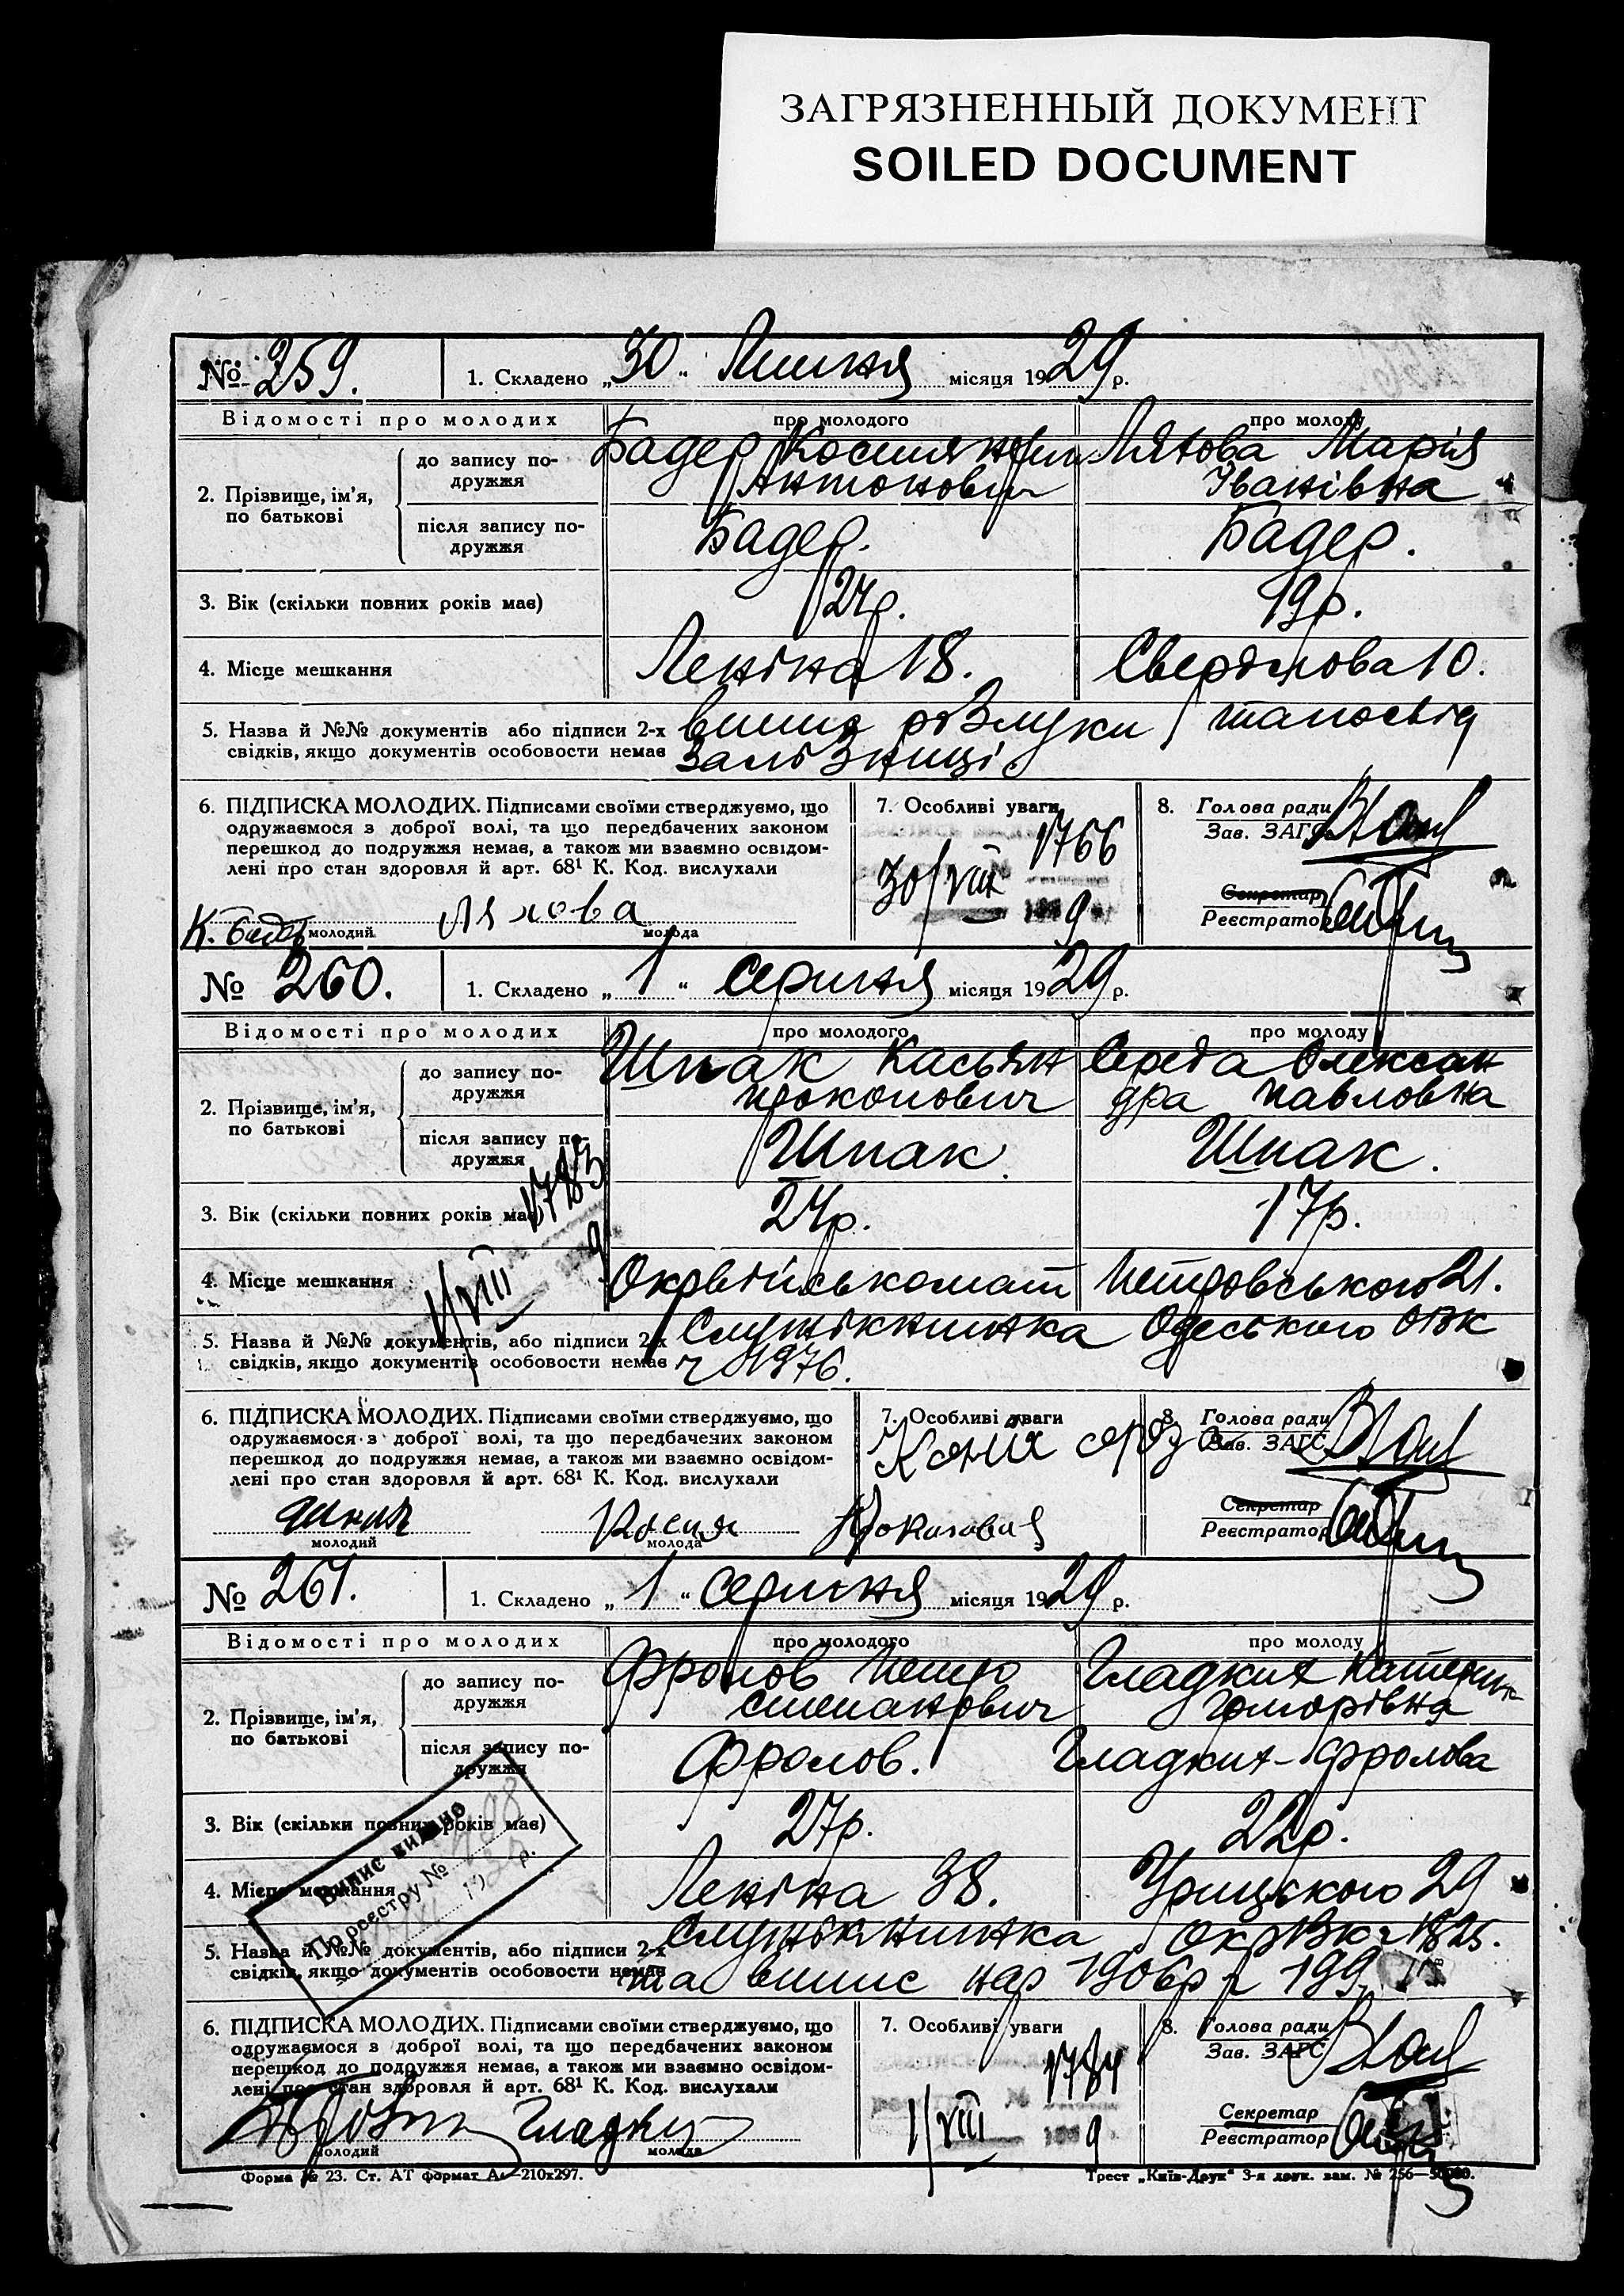 ЗАГРЯЗНЕННЫЙ ДОКУМЕНТ
SOILED DOCUMENT
№ 259.
1. Складено „30“ Липня місяця 1929 р.
Відомості про молодих
про молодого
про молоду
2. Прізвище, ім'я, по батькові
до запису подружжя
Бадер Костянтин
Антонович
Лякова Марія
Іванівна
після запису подружжя
Бадер.
Бадер.
3. Вік (скільки повних років має)
24р.
19р.
4. Місце мешкання
Леніна 18.
Свердлова 10.
5. Назва й №№ документів або підписи 2-х
свідків, якщо документів особовости немає
випис розлуки
залізниці
6. ПІДПИСКА МОЛОДИХ. Підписами своїми стверджуємо, що
одружаємося з доброї волі, та що передбачених законом
перешкод до подружжя немає, а також ми взаємно освідом-
лені про стан здоровля й арт. 68¹ К. Код. вислухали
молодий
молода
7. Особливі уваги
1766
30/VII
9
8. Голова ради
Зав. ЗАГС
Секретар
Реєстратор
№ 260.
1. Складено „1“ Серпня місяця 1929 р.
Відомості про молодих
про молодого
про молоду
2. Прізвище, ім'я, по батькові
до запису подружжя
Шпак Касьян
Прокопович
Середа Олексан
дра Павловна
після запису подружжя
Шпак.
Шпак.
1783
3. Вік (скільки повних років має)
24р.
17р.
4. Місце мешкання
1/VIII
9
Окрвійськомат
Петровського 21.
5. Назва й №№ документів, або підписи 2-х
свідків, якщо документів особовости немає
Служкнижка Одеського ОВК
ч 1976.
6. ПІДПИСКА МОЛОДИХ. Підписами своїми стверджуємо, що
одружаємося з доброї волі, та що передбачених законом
перешкод до подружжя немає, а також ми взаємно освідом-
лені про стан здоровля й арт. 68¹ К. Код. вислухали
молодий
молода
7. Особливі уваги
8. Голова ради
Зав. ЗАГС
Секретар
Реєстратор
№ 261.
1. Складено „1“ Серпня місяця 1929 р.
Відомості про молодих
про молодого
про молоду
2. Прізвище, ім'я, по батькові
до запису подружжя
Фролов Петро
Степанович
Гладких Катерин
після запису подружжя
Фролов.
Гладких-Фролова
3. Вік (скільки повних років має)
27р.
22р.
Випис видано
По реєстру №
19 р.
4. Місце мешкання
Леніна 38.
Урицького 29
5. Назва й №№ документів, або підписи 2-х
свідків, якщо документів особовости немає
Служкнижка ОкрВК ч 1825.
та випис нар 1906р ч 199
6. ПІДПИСКА МОЛОДИХ. Підписами своїми стверджуємо, що
одружаємося з доброї волі, та що передбачених законом
перешкод до подружжя немає, а також ми взаємно освідом-
лені про стан здоровля й арт. 68¹ К. Код. вислухали
молодий
молода
7. Особливі уваги
1784
1/VIII
9
8. Голова ради
Зав. ЗАГС
Секретар
Реєстратор
Форма № 23. Ст. АТ формат А₄—210х297.
Трест „Київ-Друк“ 3-я друк. зам. № 256—